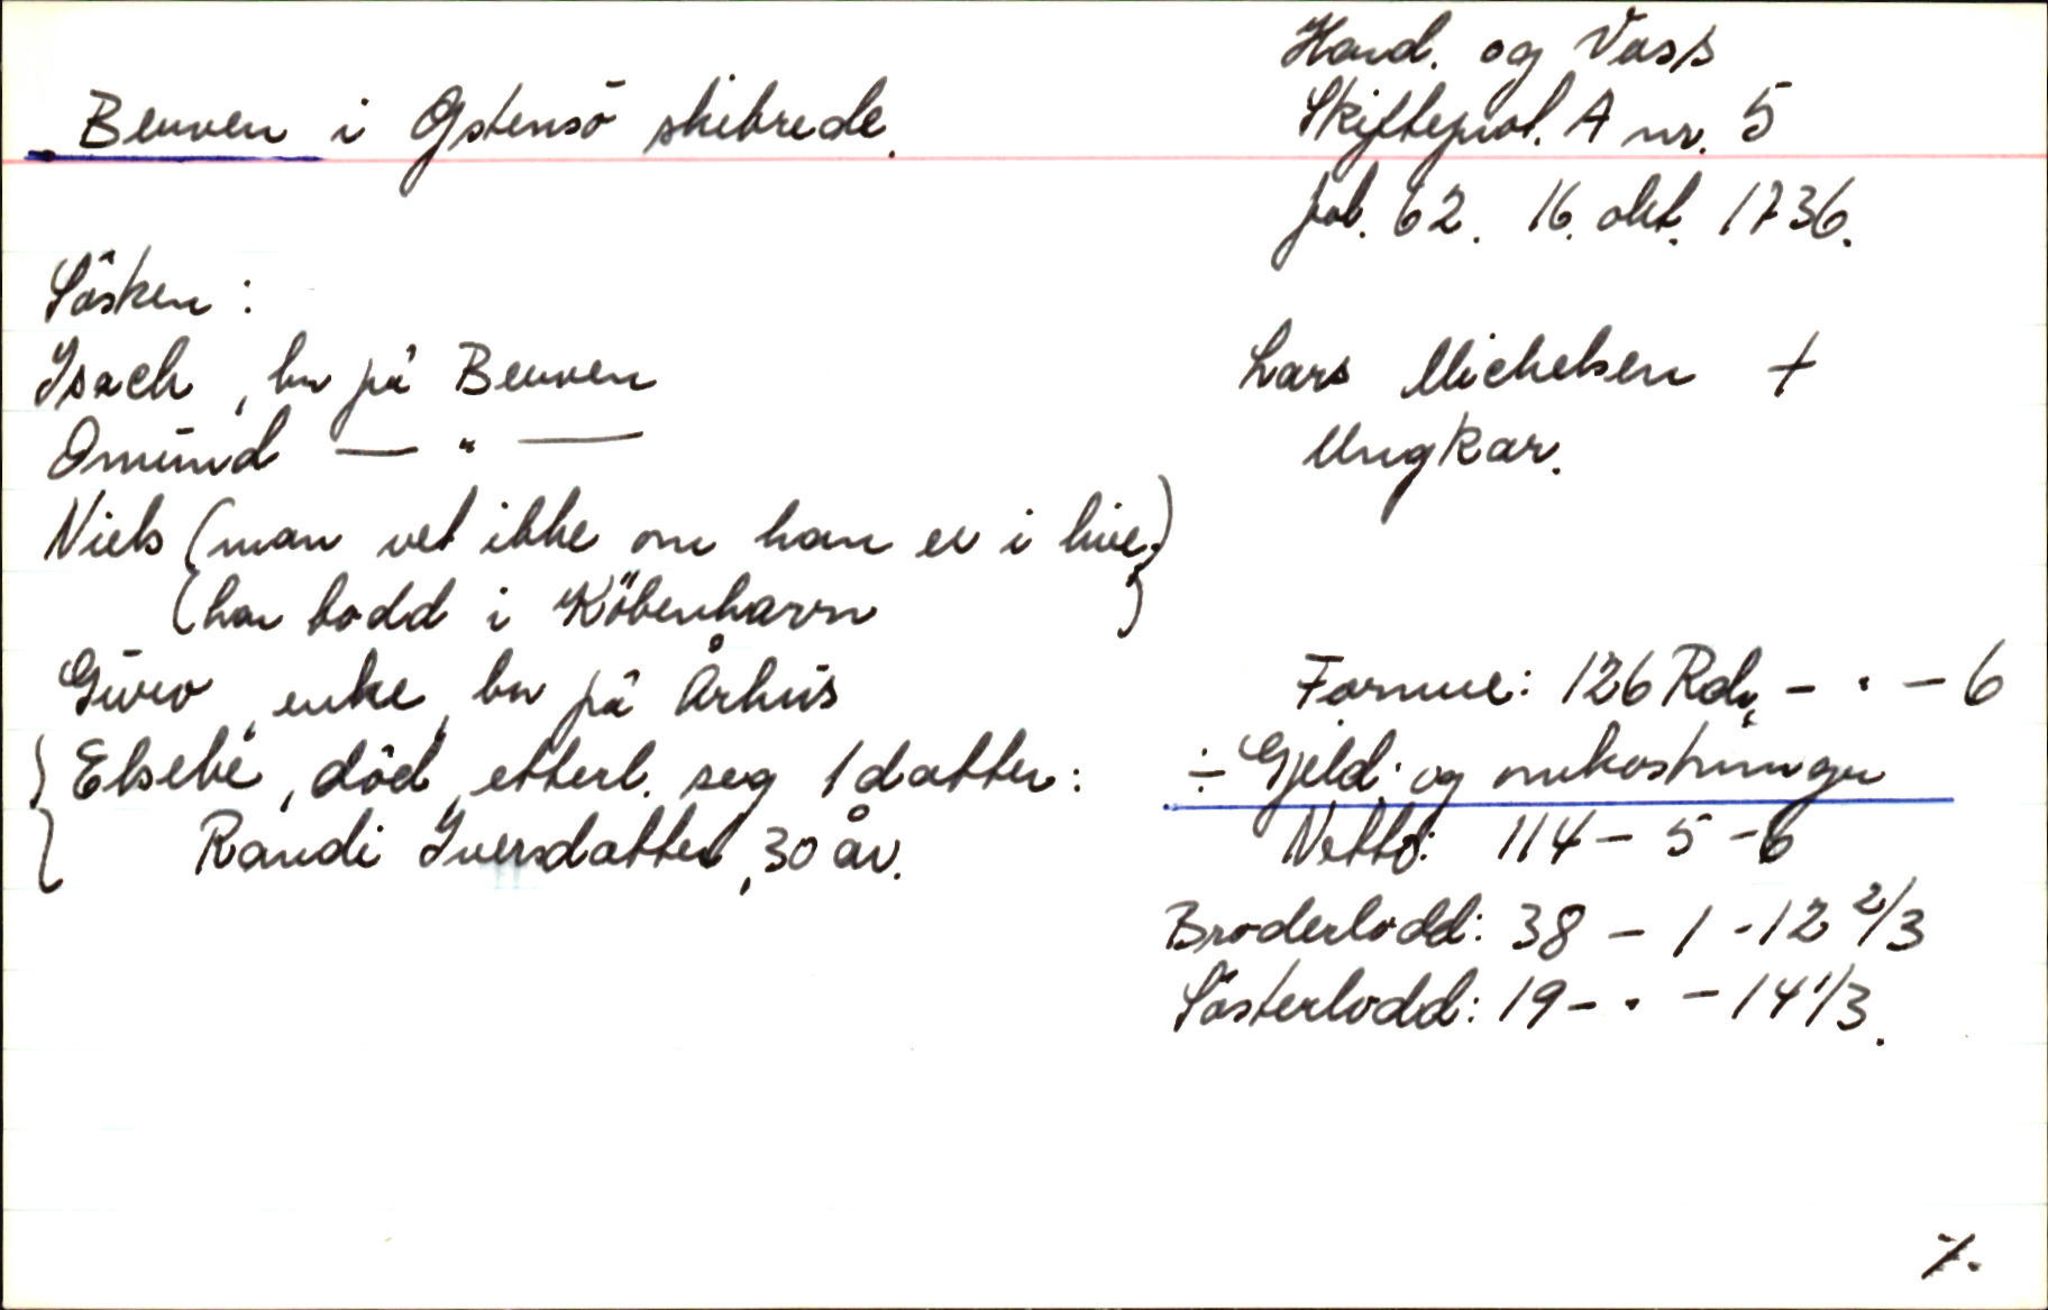 Hard. og Voss
Beuven i Østensö skibrede.
Skifteprot. A nr. 5
fol. 62. 16. okt. 1736.
Sösken:
Isach, bor på Beuven
Omund — " —
Niels (man vet ikke om han er i live.)
(har bodd i Köbenhavn)
Guro, enke, bor på Århus
Elsebe, död, etterl. seg 1 datter:
Randi Iversdatter, 30 år.
Lars Michelsen +
Ungkar.
Formue: 126 Rdr, - . - 6
÷ Gjeld og omkostninger
Netto: 114 - 5 - 6
Broderlodd: 38 - 1 - 12 2/3
Sösterlodd: 19 - . - 14 1/3.
7.